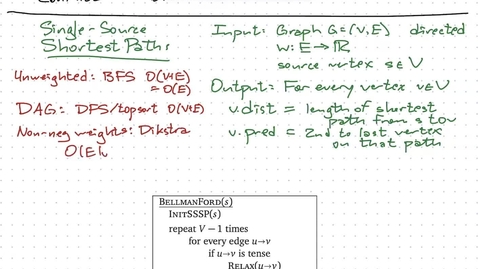 Single-Source
Shortest Paths
Unweighted: BFS O(V+E)
= O(E)
DAG: DFS/topsort O(V+E)
Non-neg weights: Dikstra
O(E l
Input: Graph G=(V,E) directed
w: E→ℝ
source vertex s∈V
Output: For every vertex v∈V
v.dist = length of shortest
path from s to v
v.pred = 2nd to last vertex
on that path
BELLMANFORD(s)
INITSSSP(s)
repeat V − 1 times
for every edge u→v
if u→v is tense
RELAX(u→v)